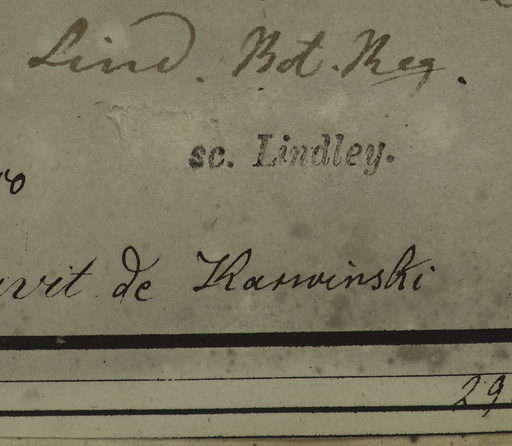 Lind. Bot. Reg.
sc. Lindley.
ro
avit de Karwinski
29